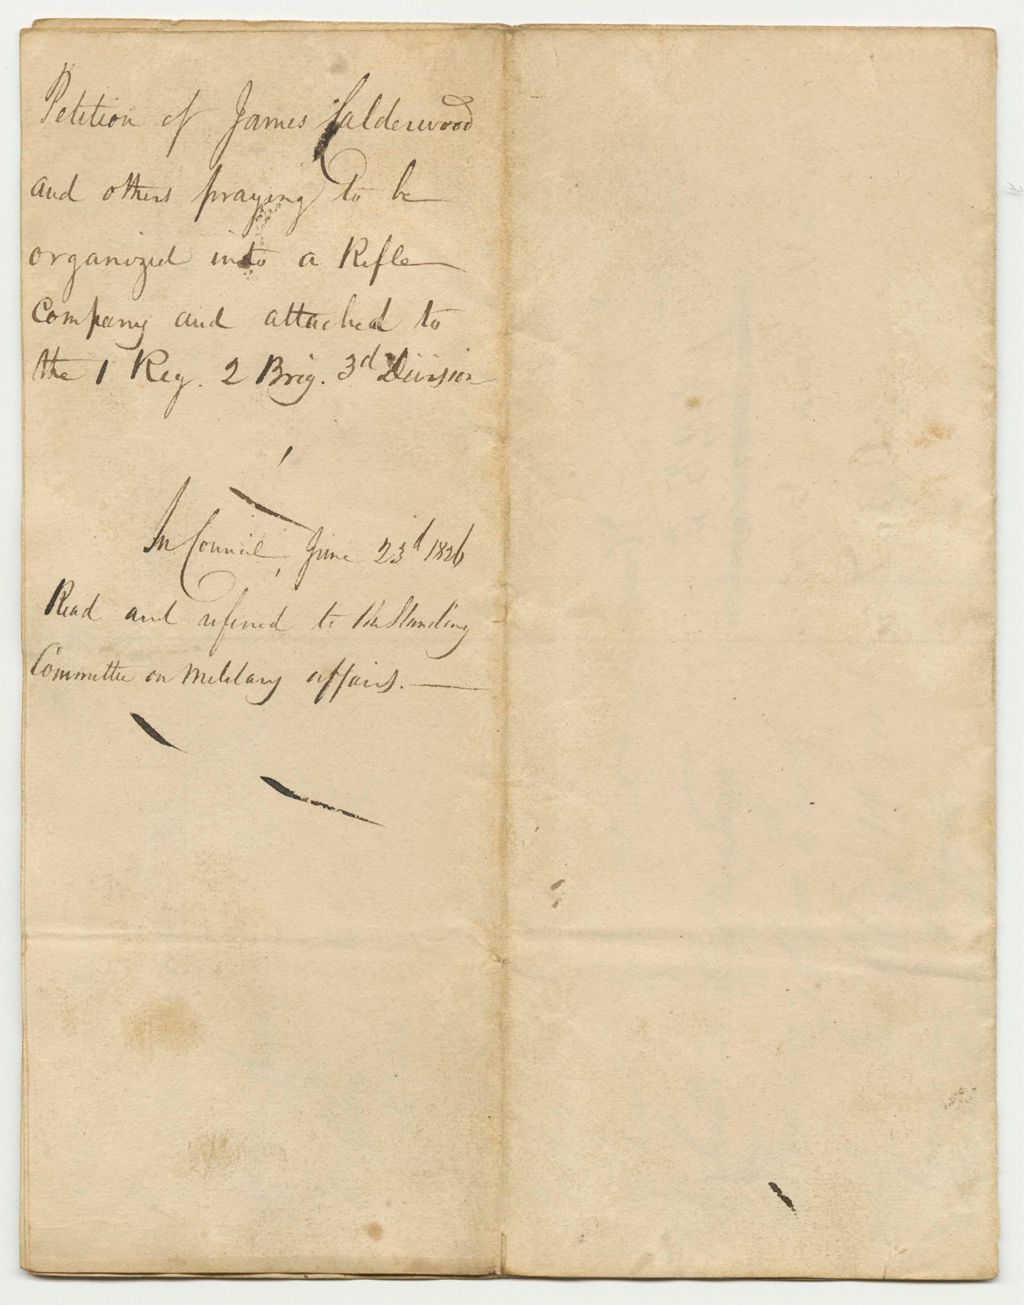 Petition of James Calderwood
and others praying to be
organized into a Rifle
Company and attached to
the 1 Reg. 2 Brig. 3d Division
In Council, June 23d 1826
Read and referred to the Standing
Committee on Military affairs.